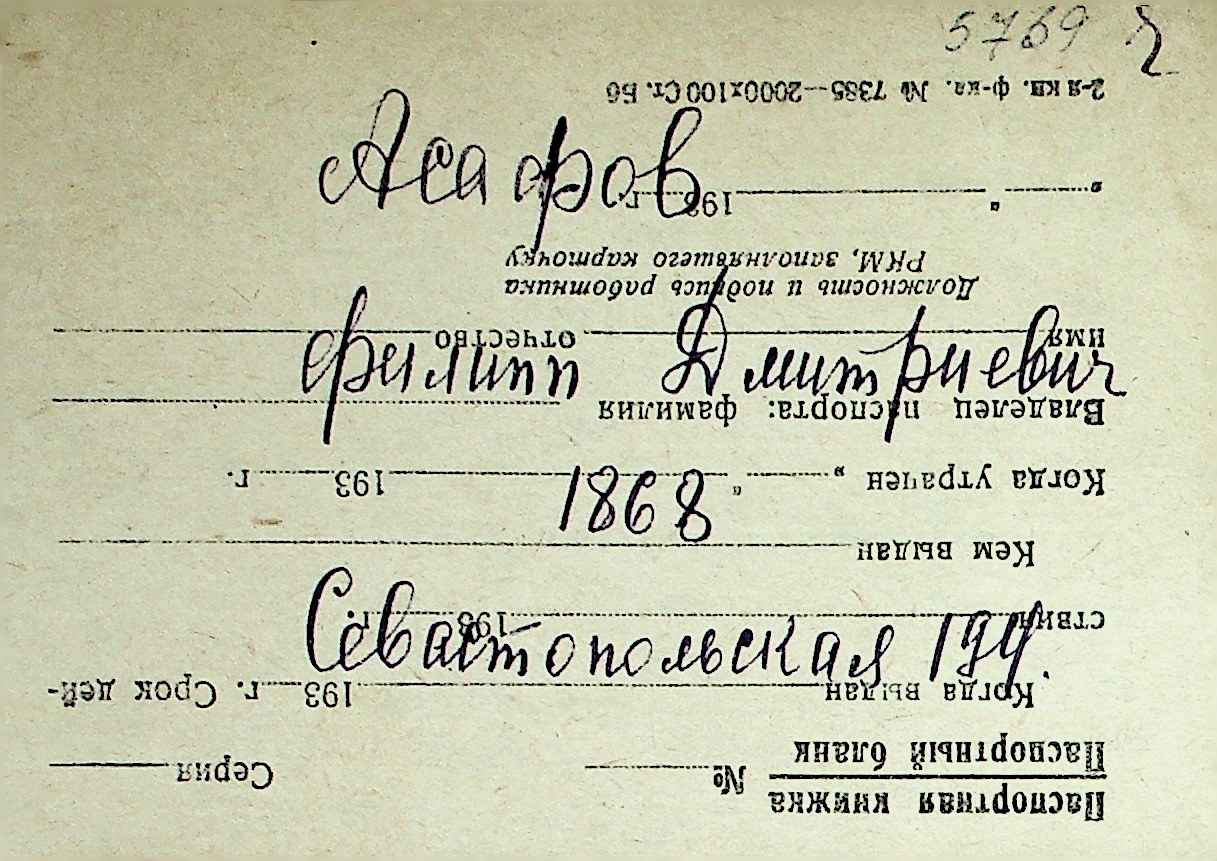 5769
Асафов
Филипп Дмитриевич
1868
Севастопольская 194.
Паспортная книжка
Паспортный бланк
№ Серия
Когда выдан 193 г. Срок дей-
ствия 193 г.
Кем выдан
Когда утрачен „ “ 193 г.
Владелец паспорта: фамилия
имя отчество
Должность и подпись работника
РКМ, заполнявшего карточку
„ “ 193 г.
2-я кн. ф-ка. № 7385—2000х100 Ст. Бб